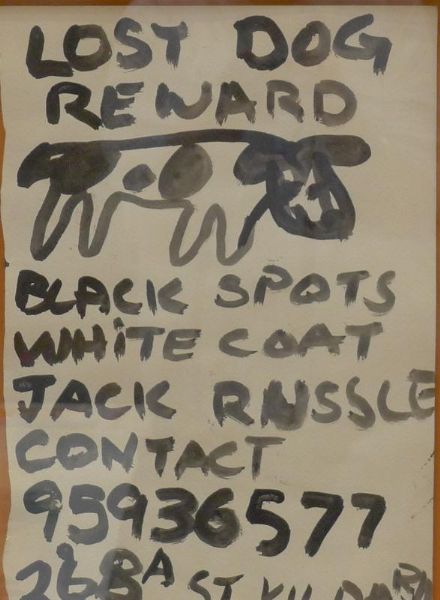 LOST DOG
REWARD
BLACK SPOTS
WHiTE COAT
JACK RUSSLE
CONTACT
95936577
268A ST KILDA RD